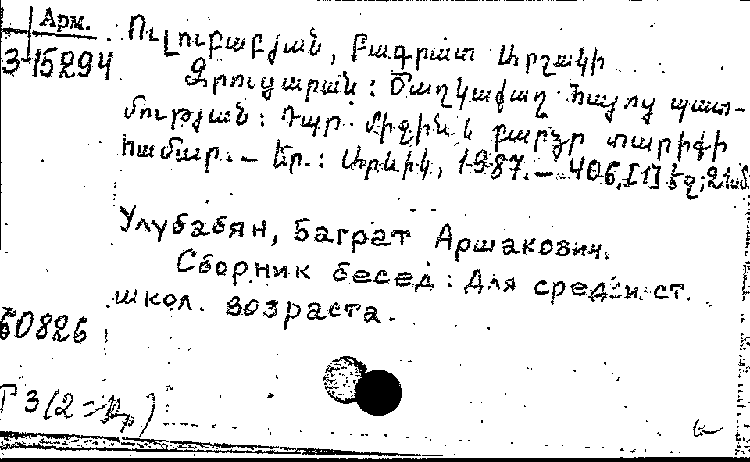 Арм.
3-15294
Ուլուբաբյան, Բագրատ Արշակի
Զրուցարան: Ծաղկաքաղ հայոց պատ-
մության: Դպր. միջին և բարձր տարիքի
համար. – Եր.: Արևիկ, 1987. – 406,[1] էջ;
Улубабян, Баграт Аршакович.
Сборник бесед: Для сред. и ст.
школ. возраста.
60826